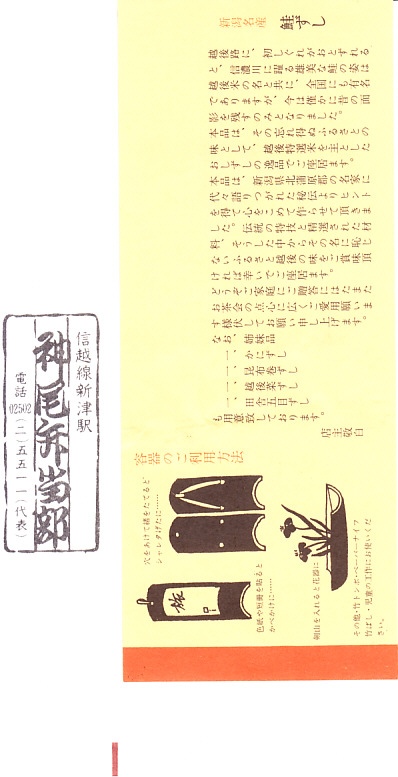 新潟名産 鮭ずし
越後路に、初しぐれがおとずれる
と、信濃川に躍る雄美な鮭の姿は
越後米の名と共に、全国にも有名
でありますが、今は僅かに昔の面
影を残すのみとなりました。
本品は、その忘れ得ぬふるさとの
味として、越後特選米を主とした
おしずしの逸品でご座居ます。
本品は、新潟県北蒲原郡の名家に
代々語りつがれた秘伝よりヒント
を得て心をこめて作らせて頂きま
した。伝統の特技と精選された材
料、そうした中からその名に恥じ
ないふるさと越後の味をご賞味頂
ければ幸いでご座居ます。
どうぞご家庭にご贈答にはたまた
お茶会の点心に広くご愛用願いま
す様伏してお願い申し上げます。
なお、姉妹品
一、かにずし
一、昆布巻ずし
一、越後菜ずし
一、田舎五目ずし
も用意致しております。
店主敬白
容器のご利用方法
穴をあけて緒をたてると
シャレタげたに……
色紙や短冊を貼ると
かべかけに……
剣山を入れると花器に
その他・竹トンボ・ペーパーナイフ
竹ばし・児童の工作にお使いくだ
さい。
信越線新津駅
神尾弁当部
電話02502(二)五五一一(代表)